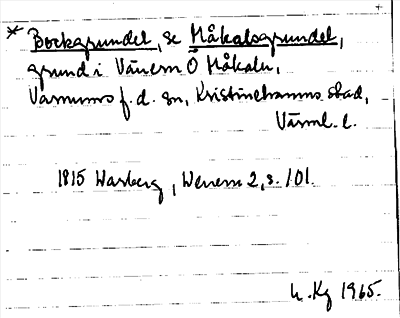 * Bockgrundet, se Måkalsgrundet,
grund i Vänern Ö Måkaln,
Varnums f.d. sn, Kristinehamns stad,
Värml. l.
1815 Warberg, Wenern 2, s. 101.
h. Kg 1965.